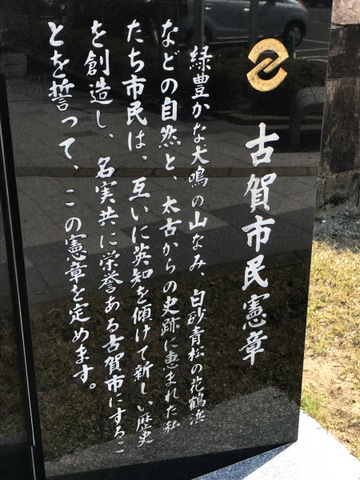 古賀市民憲章
緑豊かな犬鳴の山なみ、白砂青松の花鶴浜
などの自然と、太古からの史跡に恵まれた私
たち市民は、互いに英知を傾けて新しい歴史
を創造し、名実共に栄誉ある古賀市にするこ
とを誓って、この憲章を定めます。